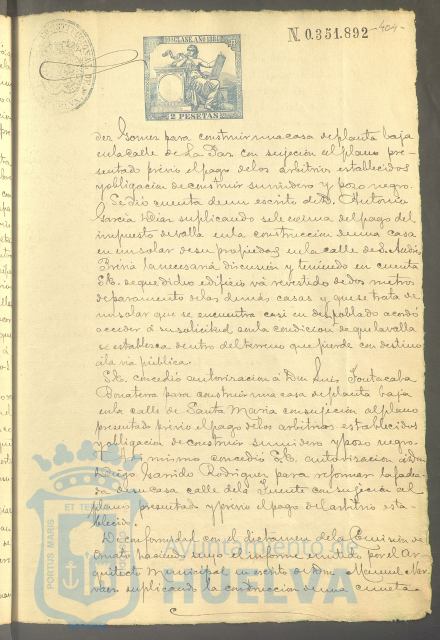 N. 0.351.892
404
CLASE. AÑO 188
2 PESETAS
dez Gomez para construir una casa de planta baja
en la calle de La Paz con sujeción al plano pre-
sentado previo el pago de los arbitrios establecidos
y obligación de construir sumidero y pozo negro.
Se dió cuenta de un escrito de D. Antonio
García Diaz suplicando se le exima del pago del
impuesto de valla en la construcción de una casa
en un solar de su propiedad en la calle de S. Andrés
Previa la necesaria discusión y teniendo en cuenta
S.E. de que dicho edificio vá revestido de dos metros
de paramento de las demás casas y que se trata de
un solar que se encuentra casi en despoblado acordó
acceder á su solicitud con la condición de que la valla
se establezca dentro del terreno que pierde con destino
á la vía pública.
S.E. concedió autorización á Don Luis
para construir una casa de planta baja
en la calle de Santa María con sujeción al plano
presentado previo el pago de los arbitrios establecidos
y obligación de construir sumidero y pozo negro.
Lo mismo concedió S.E. autorización á Don
Diego Garrido Rodriguez para reformar la facha
da de su casa calle de la Fuente con sujeción al
plano presentado y previo el pago del arbitrio esta-
blecido.
De conformidad con el dictamen de la Comisión de
Ornato haciendo suyo el informe emitido por el Ar-
quitecto Municipal en escrito de Don Manuel Nar-
vaez suplicando la construcción de una cuneta
PORTUS MARIS
ET TERRAE
Ayuntamiento de
HUELVA